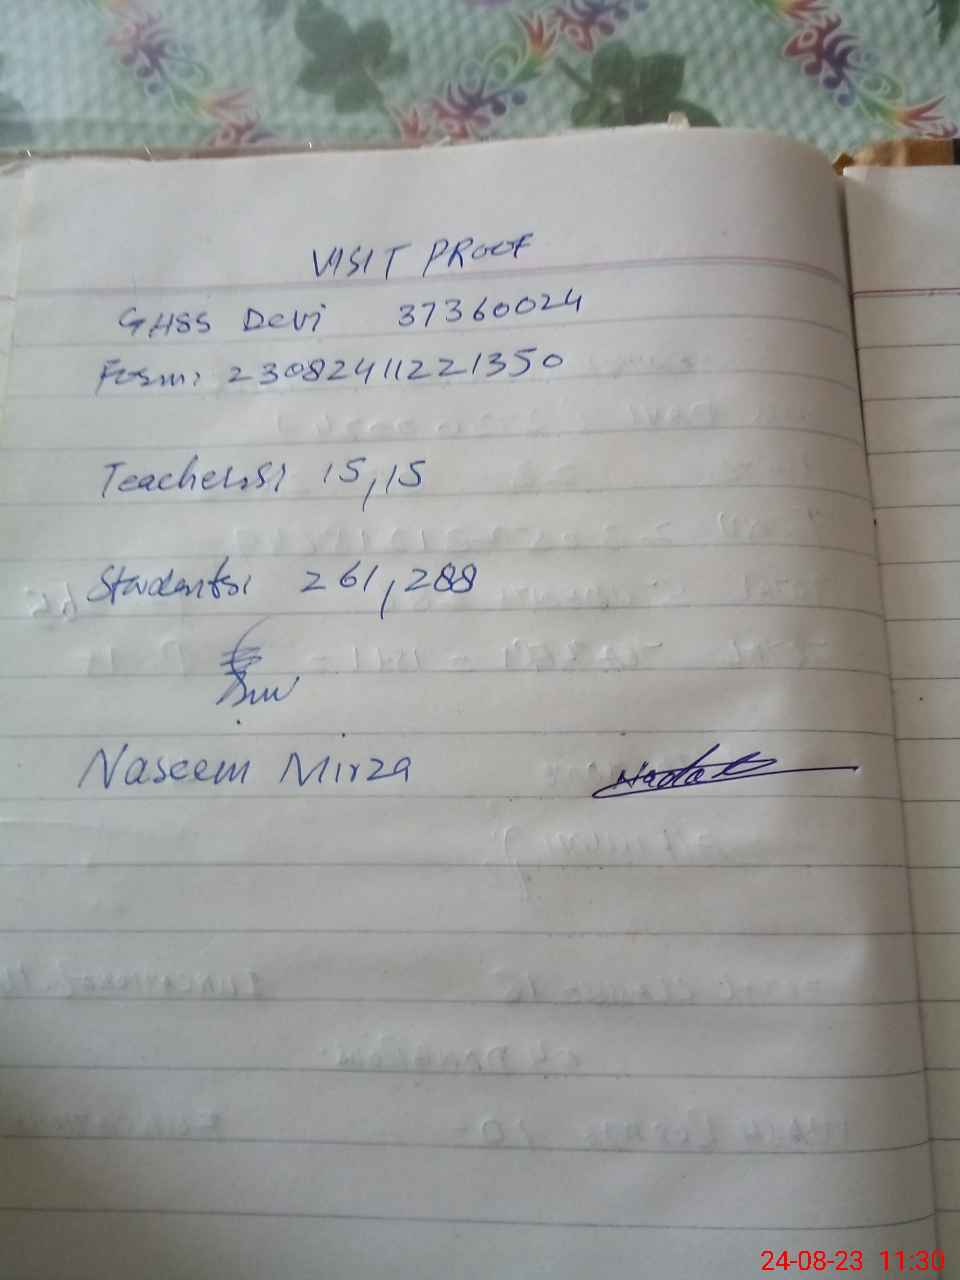 VISIT PROOF
GHSS Devi 37360024
Form: 23082411221350
Teachers: 15,15
Students: 261,288
Naseem Mirza
24-08-23 11:30